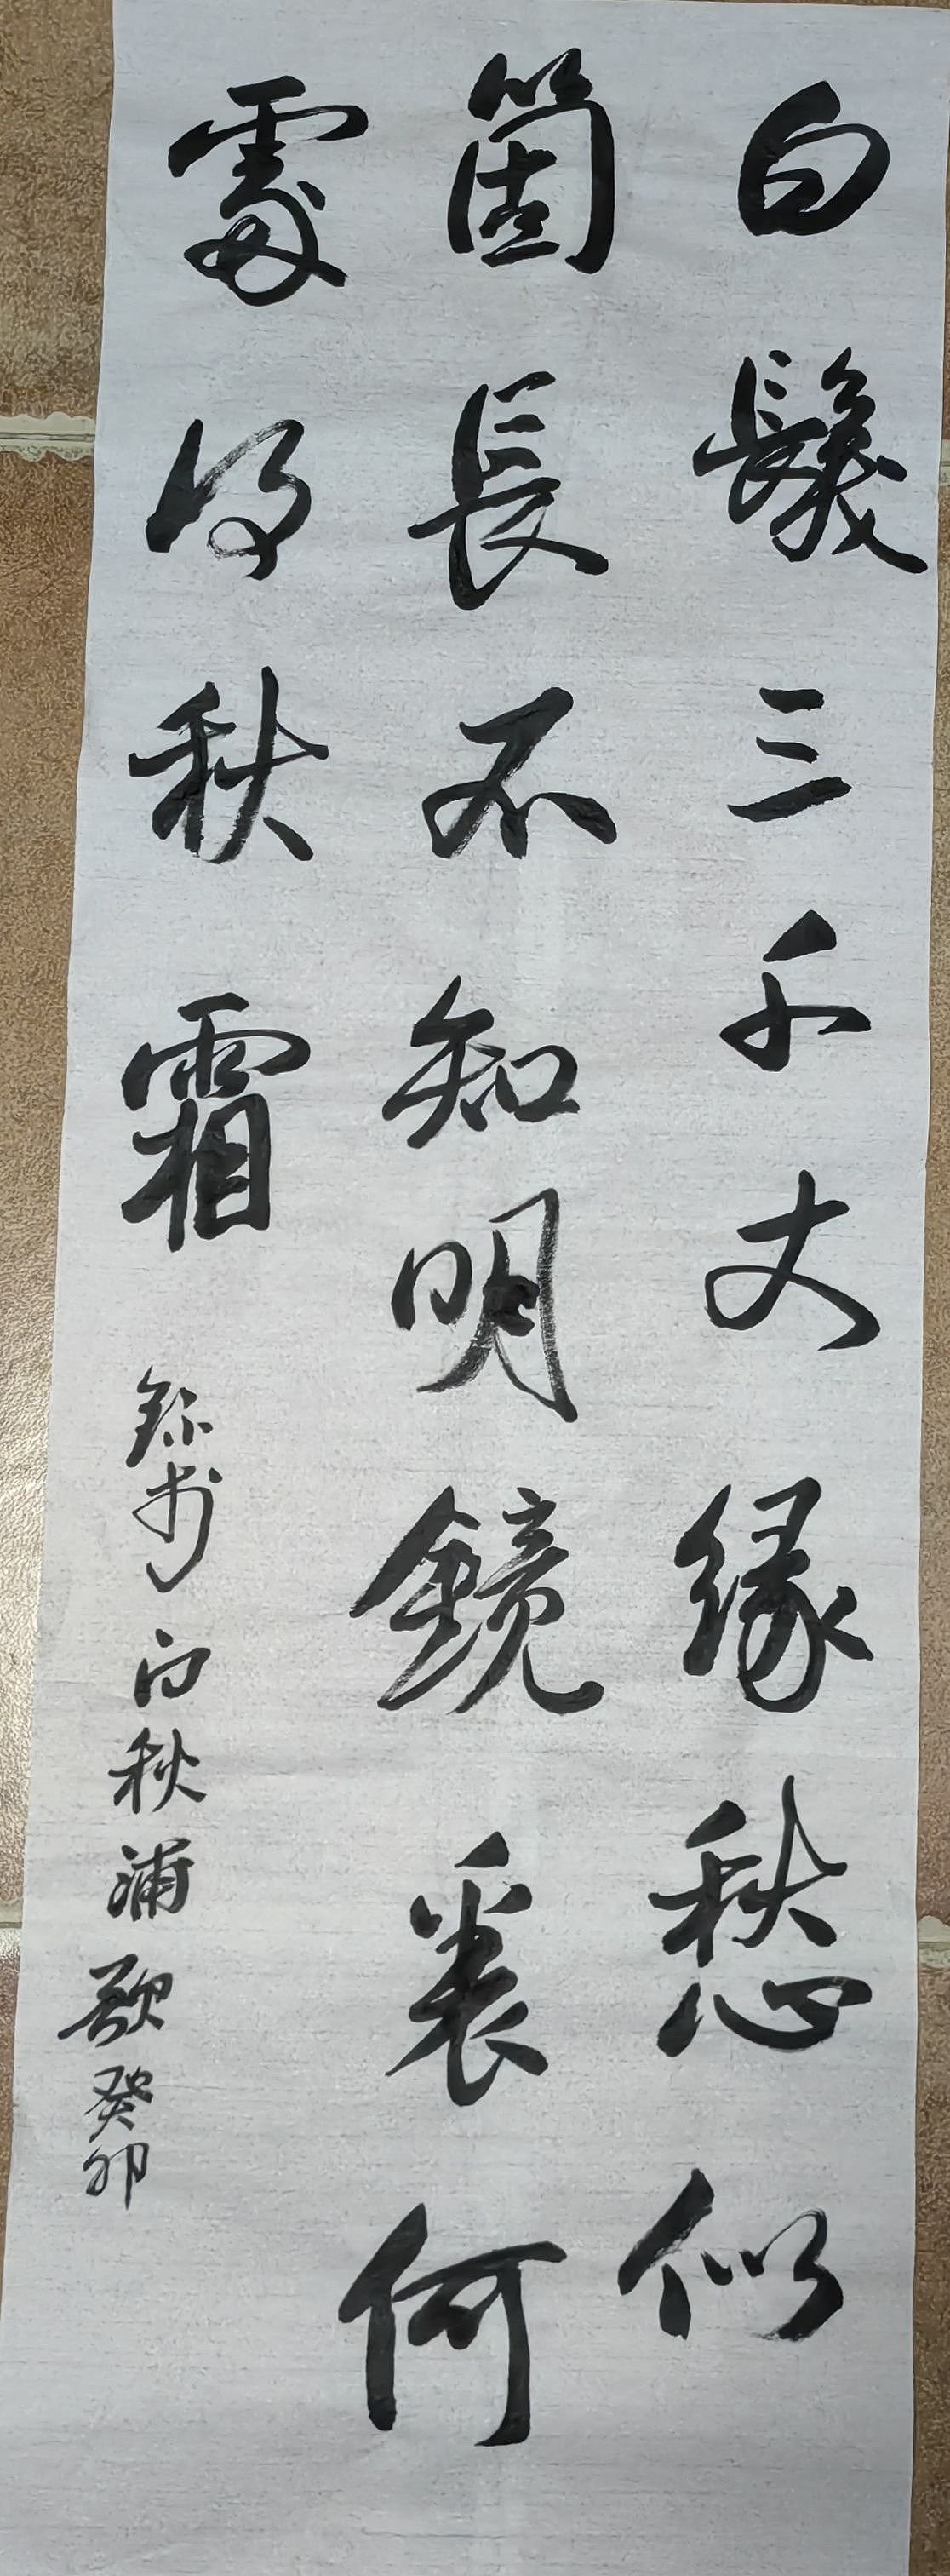 白髮三千丈緣愁似
箇長不知明鏡裏何
處得秋霜 錄李白秋浦歌癸卯